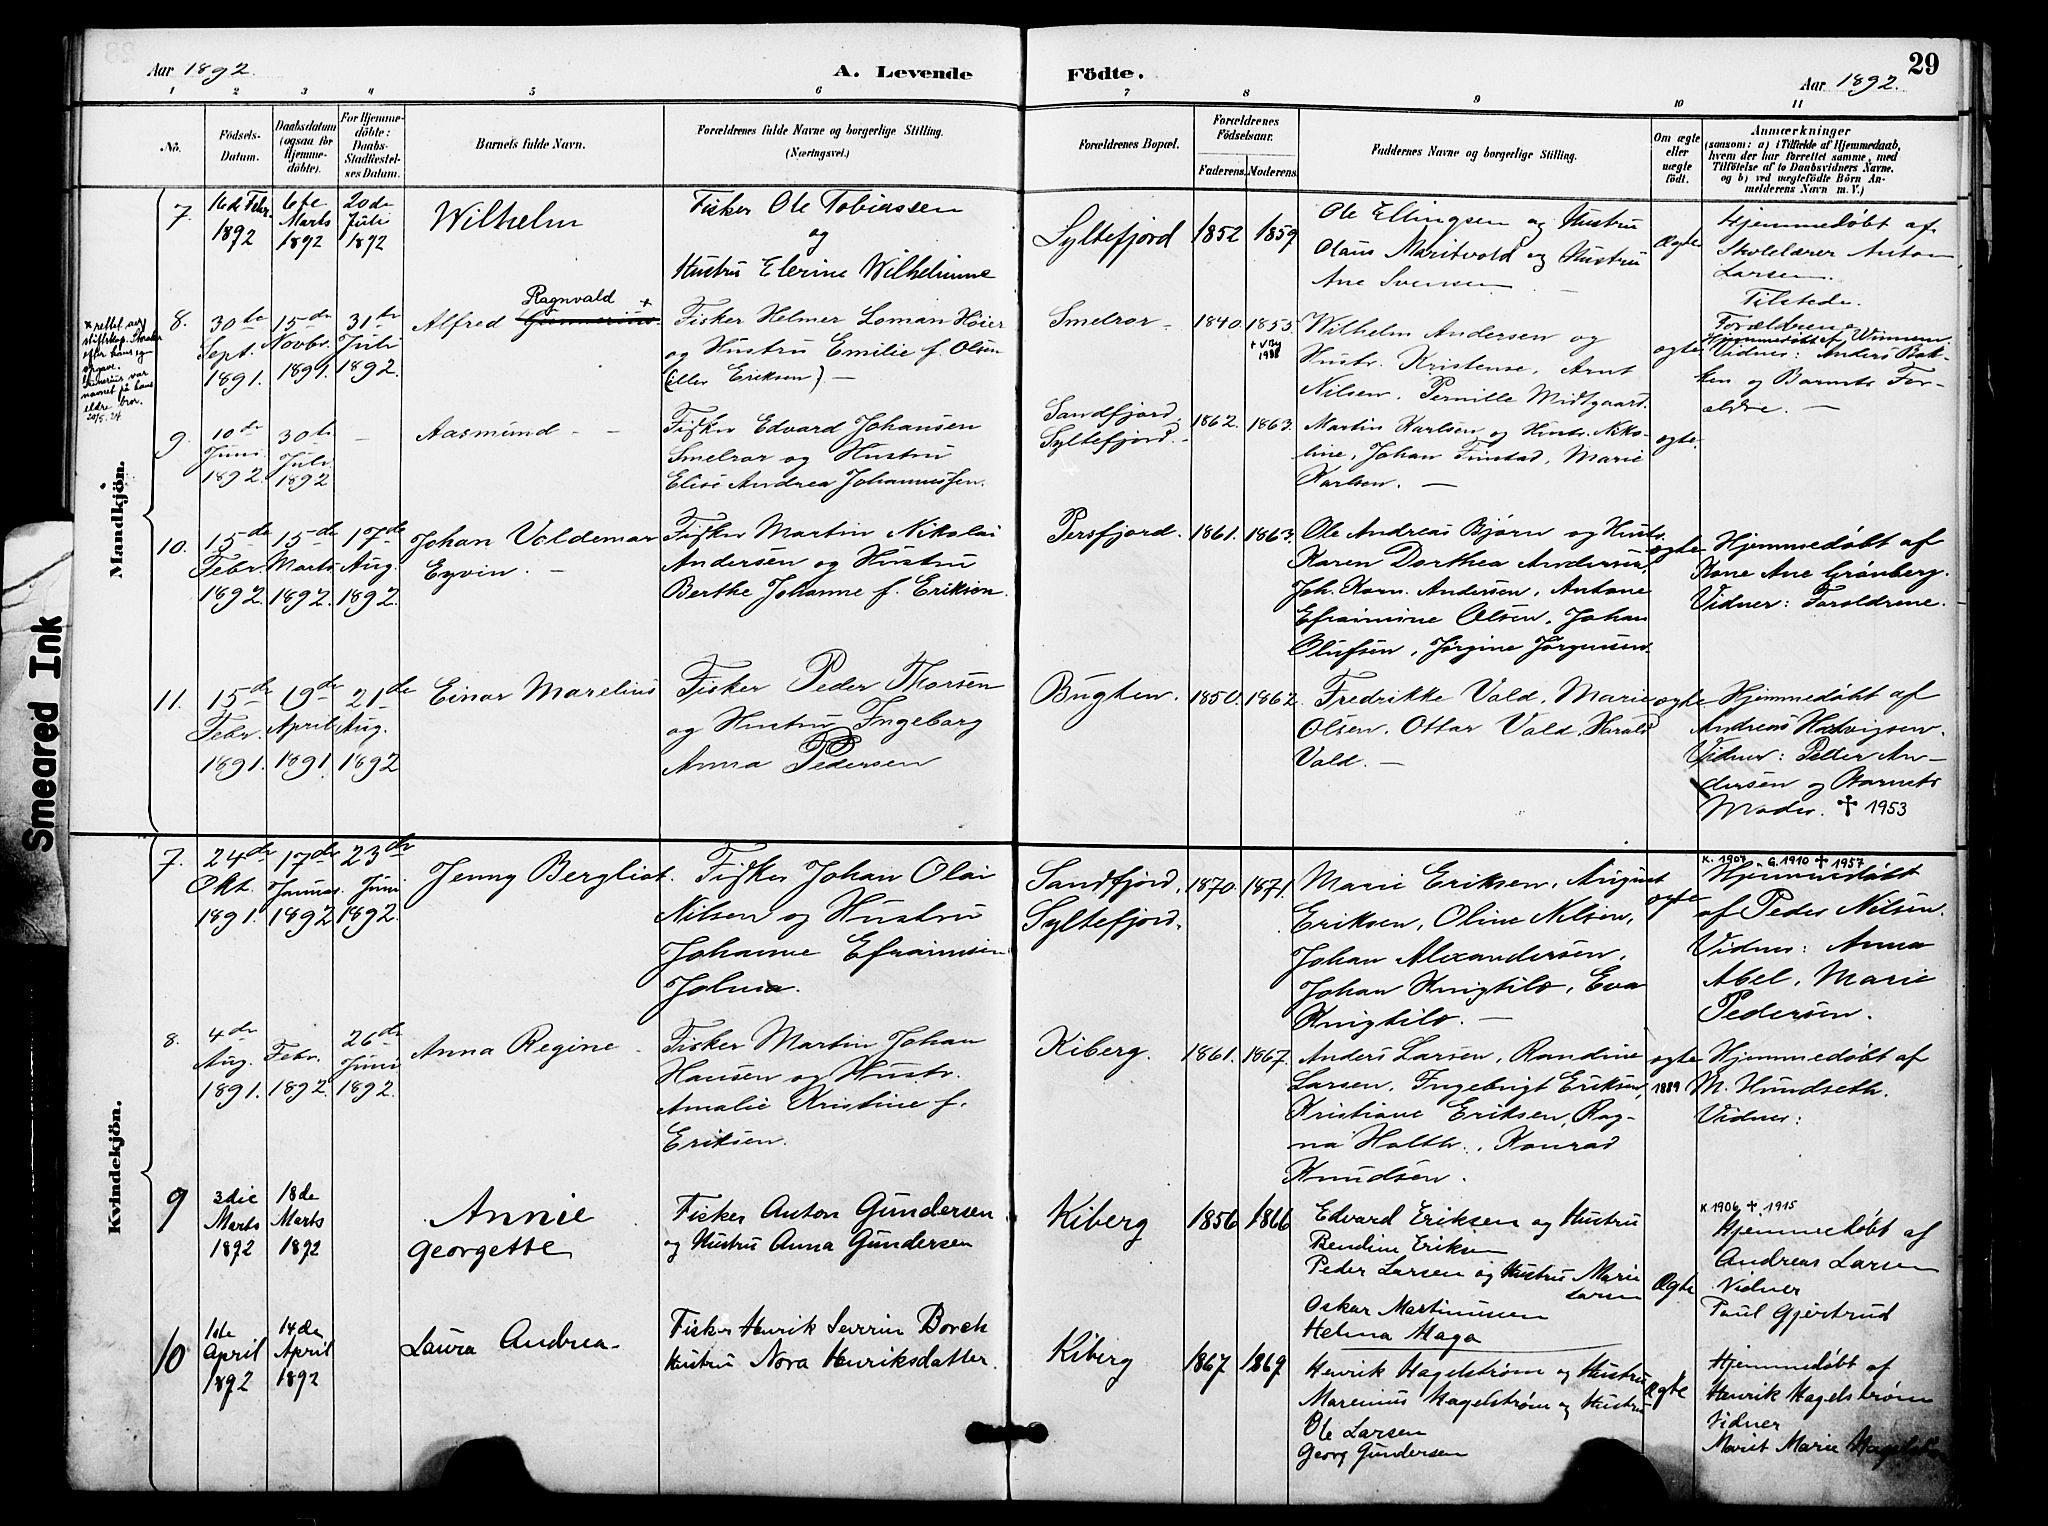 Aar 1892.
A. Levende
Födte.
29
Aar 1892.
1 2 3 4 5 6 7 8 9 10 11
No.
Födsels-
Datum.
Daabsdatum
(ogsaa for
Hjemme-
döbte).
For Hjemme-
döbte:
Daabs-
Stadfæstel-
ses Datum.
Barnets fulde Navn.
Forældrenes fulde Navne og borgerlige Stilling.
(Næringsvei.)
Forældrenes Bopæl.
Forældrenes
Födselsaar.
Faderens. Moderens.
Faddernes Navne og borgerlige Stilling.
Om ægte
eller
uægte
födt.
Anmærkninger
(saasom: a) i Tilfælde af Hjemmedaab,
hvem der har forrettet samme, med
Tilföielse af to Daabsvidners Navne,
og b) ved uægtefödte Börn An-
melderens Navn m. V.)
Mandkjön.
7.
16de Febr.
1892
6te
Marts
1892
20de
Juli
1892
Wilhelm
Fisker Ole Tobiassen
og
Hustru Elerine Wilhelmine
Syltefjord
1852
1859
Ole Ellingsen og Hustru
Olaus Maritvold og Hustru
Ane Svensen
Ægte
Hjemmedøbt af
Skolelærer Anton
Larsen.
Tilstede.
Forældrene
8.
30te
Sept.
1891.
15de
Novbr.
1891.
31te
Juli
1892.
Ragnvald +
Alfred
Fisker Helmer Loman Høier
og Hustru Emilie f. Olsen
(eller Eriksen) —
Smelror
1840.
1855
1938
Wilhelm Andersen og
Hustr. Kristense, Arnt
Nilsen, Pernille Midtgaard.
ægte
Vidner: Anders Bak-
ken og Barnets For-
ældre. —
navnet på hans
eldre bror.
20/5. 24
9.
10de
Juni
1892.
30te
Juli
1892
—
Aasmund —
Fisker Edvard Johansen
Smelror og Hustru
Elise Andrea Johannessen.
Sandfjord,
Syltefjord.
1862.
1863.
Martin Karlsen og Hustr. Niko-
line, Johan Finstad, Marie
Karlsen. —
ægte.
10.
15de
Febr.
1892.
15de
Marts
1892.
17de
Aug.
1892.
Johan Valdemar
Eyvin. —
Fisker Martin Nikolai
Andersen og Hustru
Berthe Johanne f. Eriksen.
Persfjord.
1861.
1863.
Ole Andreas Bjørn og Hustr.
Karen Dorthea Andersen,
Joh. Korn. Andersen, Antone
Efraimine Olsen, Johan
Olufsen, Jørgine Jørgensen.
ægte
Hjemmedøbt af
Kone Ane Grønberg.
Vidner: Forældrene.
11.
15de
Febr.
1891.
19de
April
1891.
21de
Aug.
1892
Einar Marelius
Fisker Peder Thorsen
og Hustru Ingeborg
Anna Pedersen
Bugten.
1850.
1862.
Fredrikke Vald, Marie
Olsen, Ottar Vald, Harald
Vald. —
ægte
Hjemmedøbt af
Andreas Hedvigsen.
Vidner: Peder An-
dersen og Barnets
Moder. ✝ 1953
Kvindekjön.
7.
24de
Okt.
1891.
17de
Januar
1892
23de
Juni
1892.
Jenny Bergliot.
Fisker Johan Olai
Nilsen og Hustru
Johanne Efraimsen
Johnsa.
Sandfjord,
Syltefjord.
1870.
1871.
Marie Eriksen, August
Eriksen, Oline Nilsen,
Johan Alexandersen,
Johan Knigtilo, Eva
Knigtilo. —
ægte
K. 1907. G. 1910 ✝ 1957
Hjemmedøbt
af Peder Nilsen.
Vidner: Anna
Abel, Marie
Pedersen.
8.
4de
Aug.
1891.
Febr.
1892.
26de
Juni
1892.
Anna Regine
Fisker Martin Johan
Hansen og Hustr.
Amalie Kristine f.
Eriksen.
Kiberg.
1861.
1867.
Anders Larsen, Randine
Larsen, Ingebrigt Eriksen,
Kristiane Eriksen, Rag-
na Holth., Konrad
Knudsen.
ægte
1889
Hjemmedøbt af
M. Hundseth.
Vidner:
9
3die
Marts
1892
18de
Marts
1892
Annie
Georgette
Fisker Anton Gundersen
og Hustru Anna Gundersen
Kiberg
1856
1866
Edvard Eriksen og Hustru
Bendine Eriksen
Peder Larsen og Hustru Marie
Larsen
Oskar Martinussen
Helma Maga
Ægte
K. 1906 ✝. 1915
Hjemmedøbt af
Andreas Larsen
Vidner
Paul Gjertrud
10
1ste
April
1892
14de
April
1892
Laura Andrea
Fisker Henrik Severin Borch
Hustru Nora Henriksdatter
Kiberg
1867
1869
Henrik Hagelstrøm og Hustru
Marenius Hagelstrøm og Hustru
Ole Larsen
Georg Gundersen
Ægte
Hjemmedøbt af
Henrik Hagelstrøm
Vidner
Marit Marie
Smeared Ink